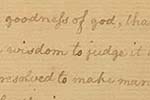 goodness of god, tha
wisdom to judge it
resolved to make man